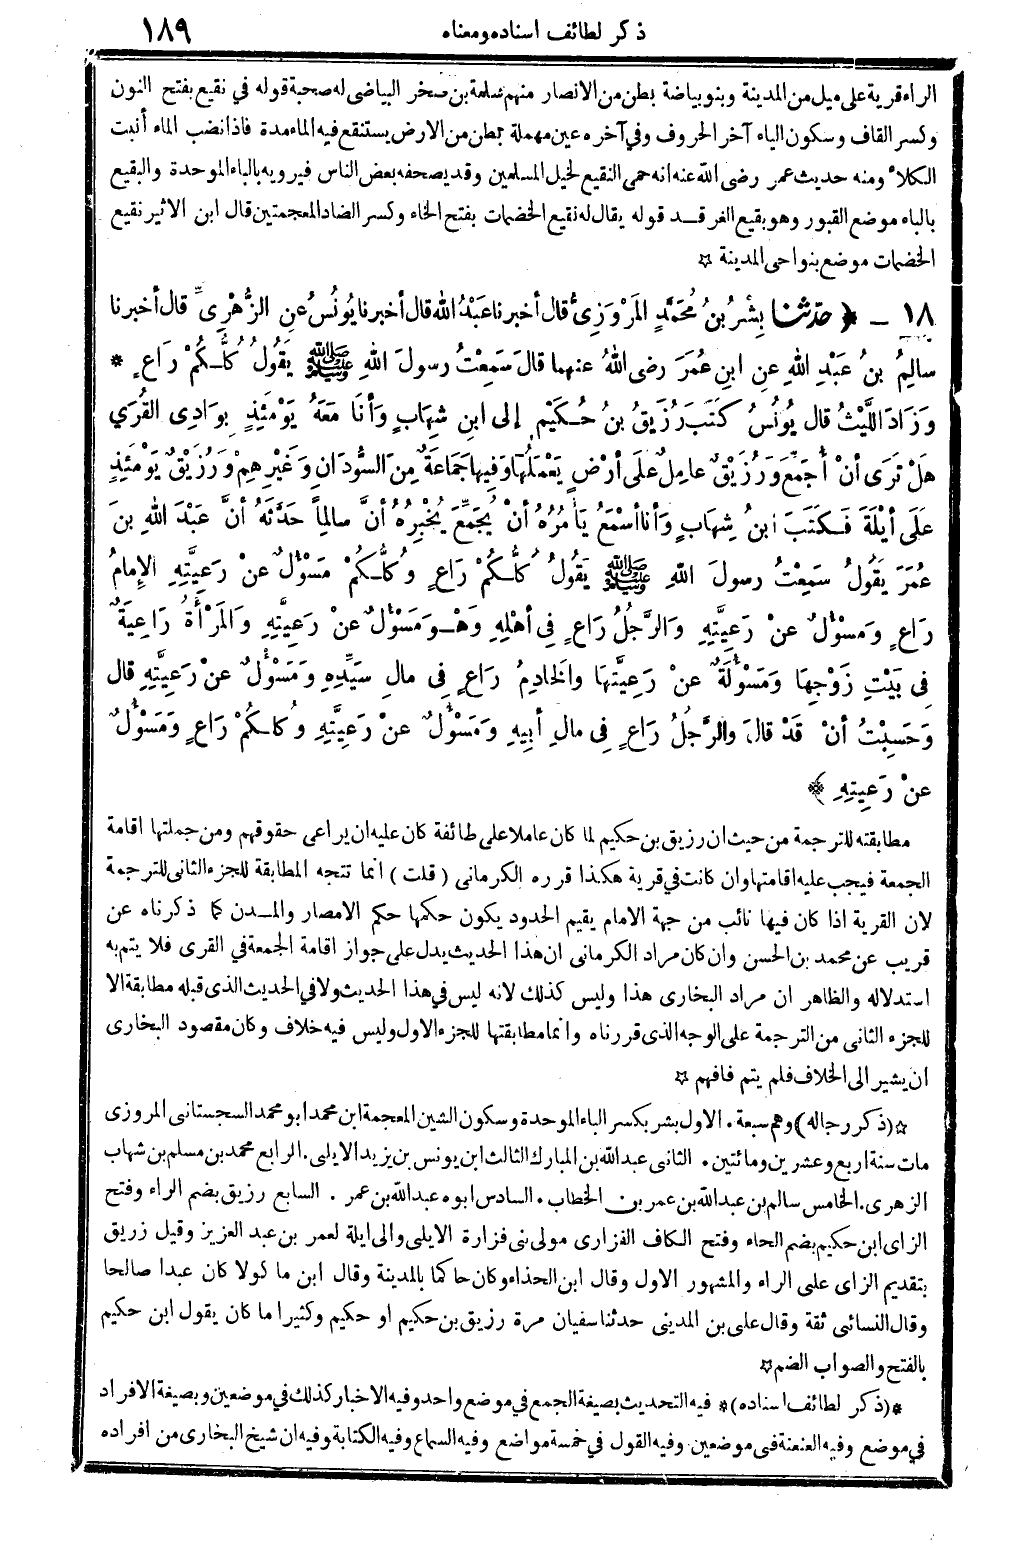 ذكر لطائف اسناده ومعناه ١٨٩
الراء قرية على ميل من المدينة وبنو بياضة بطن من الانصار منهم سلمة بن صخر البياضى له صحبة قوله في نقيع بفتح النون
وكسر القاف وسكون الياء آخر الحروف وفي آخره عين مهملة بطن من الارض يستنقع فيه الماء مدة فاذا نضب الماء أنبت
الكلأ ومنه حديث عمر رضى الله عنه انه حمى النقيع لخيل المسلمين وقد يصحفه بعض الناس فيرويه بالباء الموحدة والبقيع
بالباء موضع القبور وهو بقيع الغرقد قوله يقال له نقيع الخضمات بفتح الخاء وكسر الضاد المعجمتين قال ابن الاثير نقيع
الخضمات موضع بنواحى المدينة ☆
١٨ ـ ﴿ حدثنا بِشْرُ بنُ مُحَمَّدٍ المَرْوَزِىُّ قال أخبرنا عَبْدُ اللهِ قال أخبرنا يُونُسُ عنِ الزُّهْرِىِّ قال أخبرنا
سالِمُ بنُ عَبْدِ اللهِ عنِ ابنِ عُمَرَ رضى اللهُ عنهما قالَ سَمِعْتُ رسولَ اللهِ ﷺ يَقُولُ كُلُّكُمْ رَاعٍ *
وَزَادَ اللَّيْثُ قال يُونُسُ كَتَبَ رُزَيْقُ بنُ حُكَيْمٍ إلى ابنِ شِهَابٍ وَأنَا مَعَهُ يَوْمَئِذٍ بِوَادِى القُرَي
هَلْ تَرَى أنْ أُجَمِّعَ وَرُزَيْقٌ عامِلٌ علَى أرْضٍ يَعْمَلُهَا وَفِيها جَمَاعَةٌ مِنَ السُّودَانِ وَغَيْرِهِمْ وَرُزَيْقٌ يَوْمَئِذٍ
عَلَى أيْلَةَ فَكَتَبَ ابنُ شِهَابٍ وَأنا أسْمَعُ يَأمُرُهُ أنْ يُجَمِّعَ يُخْبِرُهُ أنَّ سالِماً حَدَّثَهُ أنَّ عَبْدَ اللهِ بنَ
عُمَرَ يَقُولُ سَمِعْتُ رسولَ اللهِ ﷺ يَقُولُ كُلُّكُمْ رَاعٍ وَكُلُّكُمْ مَسْؤُلٌ عنْ رَعِيَّتِهِ الإِمامُ
رَاعٍ وَمَسْؤُلٌ عنْ رَعِيَّتِهِ وَالرَّجُلُ رَاعٍ فِى أهْلِهِ وَهْوَ مَسْؤُلٌ عنْ رَعِيَّتِهِ وَالمَرْأةُ رَاعِيَةٌ
فِى بَيْتِ زَوْجِهَا وَمَسْؤُلَةٌ عنْ رَعِيَّتِهَا وَالخَادِمُ رَاعٍ فِى مالِ سَيِّدِهِ وَمَسْؤُلٌ عنْ رَعِيَّتِهِ قال
وَحَسِبْتُ أنْ قَدْ قالَ وَالرَّجُلُ رَاعٍ فِى مالِ أبِيهِ وَمَسْؤُلٌ عنْ رَعِيَّتِهِ وَكُلُّكُمْ رَاعٍ وَمَسْؤُلٌ
عنْ رَعِيَّتِهِ ﴾
مطابقته للترجمة من حيث ان رزيق بن حكيم لما كان عاملا على طائفة كان عليه ان يراعى حقوقهم ومن جملتها اقامة
الجمعة فيجب عليه اقامتها وان كانت في قرية هكذا قرره الكرمانى (قلت) انما تتجه المطابقة للجزء الثانى للترجمة
لان القرية اذا كان فيها نائب من جهة الامام يقيم الحدود يكون حكمها حكم الامصار والمدن كما ذكرناه عن
قريب عن محمد بن الحسن وان كان مراد الكرمانى ان هذا الحديث يدل على جواز اقامة الجمعة في القرى فلا يتم به
استدلاله والظاهر ان مراد البخارى هذا وليس كذلك لانه ليس في هذا الحديث ولا في الحديث الذى قبله مطابقة الا
للجزء الثانى من الترجمة على الوجه الذى قررناه وانما مطابقتها للجزء الاول وليس فيه خلاف وكان مقصود البخارى
ان يشير الى الخلاف فلم يتم فافهم ☆
☆(ذكر رجاله) وهم سبعة. الاول بشر بكسر الباء الموحدة وسكون الشين المعجمة ابن محمد ابو محمد السجستانى المروزى
مات سنة اربع وعشرين ومائتين. الثانى عبدالله بن المبارك الثالث ابن يونس بن يزيد الايلى. الرابع محمد بن مسلم بن شهاب
الزهرى. الخامس سالم بن عبدالله بن عمر بن الخطاب. السادس ابوه عبدالله بن عمر. السابع رزيق بضم الراء وفتح
الزاى ابن حكيم بضم الحاء وفتح الكاف الفزارى مولى بنى فزارة الايلى والى ايلة لعمر بن عبد العزيز وقيل زريق
بتقديم الزاى على الراء والمشهور الاول وقال ابن الحذاء وكان حاكما بالمدينة وقال ابن ماكولا كان عبدا صالحا
وقال النسائى ثقة وقال على بن المدينى حدثنا سفيان مرة رزيق بن حكيم او حكيم وكثيرا ما كان يقول ابن حكيم
بالفتح والصواب الضم☆
*(ذكر لطائف اسناده)* فيه التحديث بصيغة الجمع في موضع واحد وفيه الاخبار كذلك في موضعين وبصيغة الافراد
في موضع وفيه العنعنة فى موضعين وفيه القول في خمسة مواضع وفيه السماع وفيه الكتابة وفيه ان شيخ البخارى من افراده